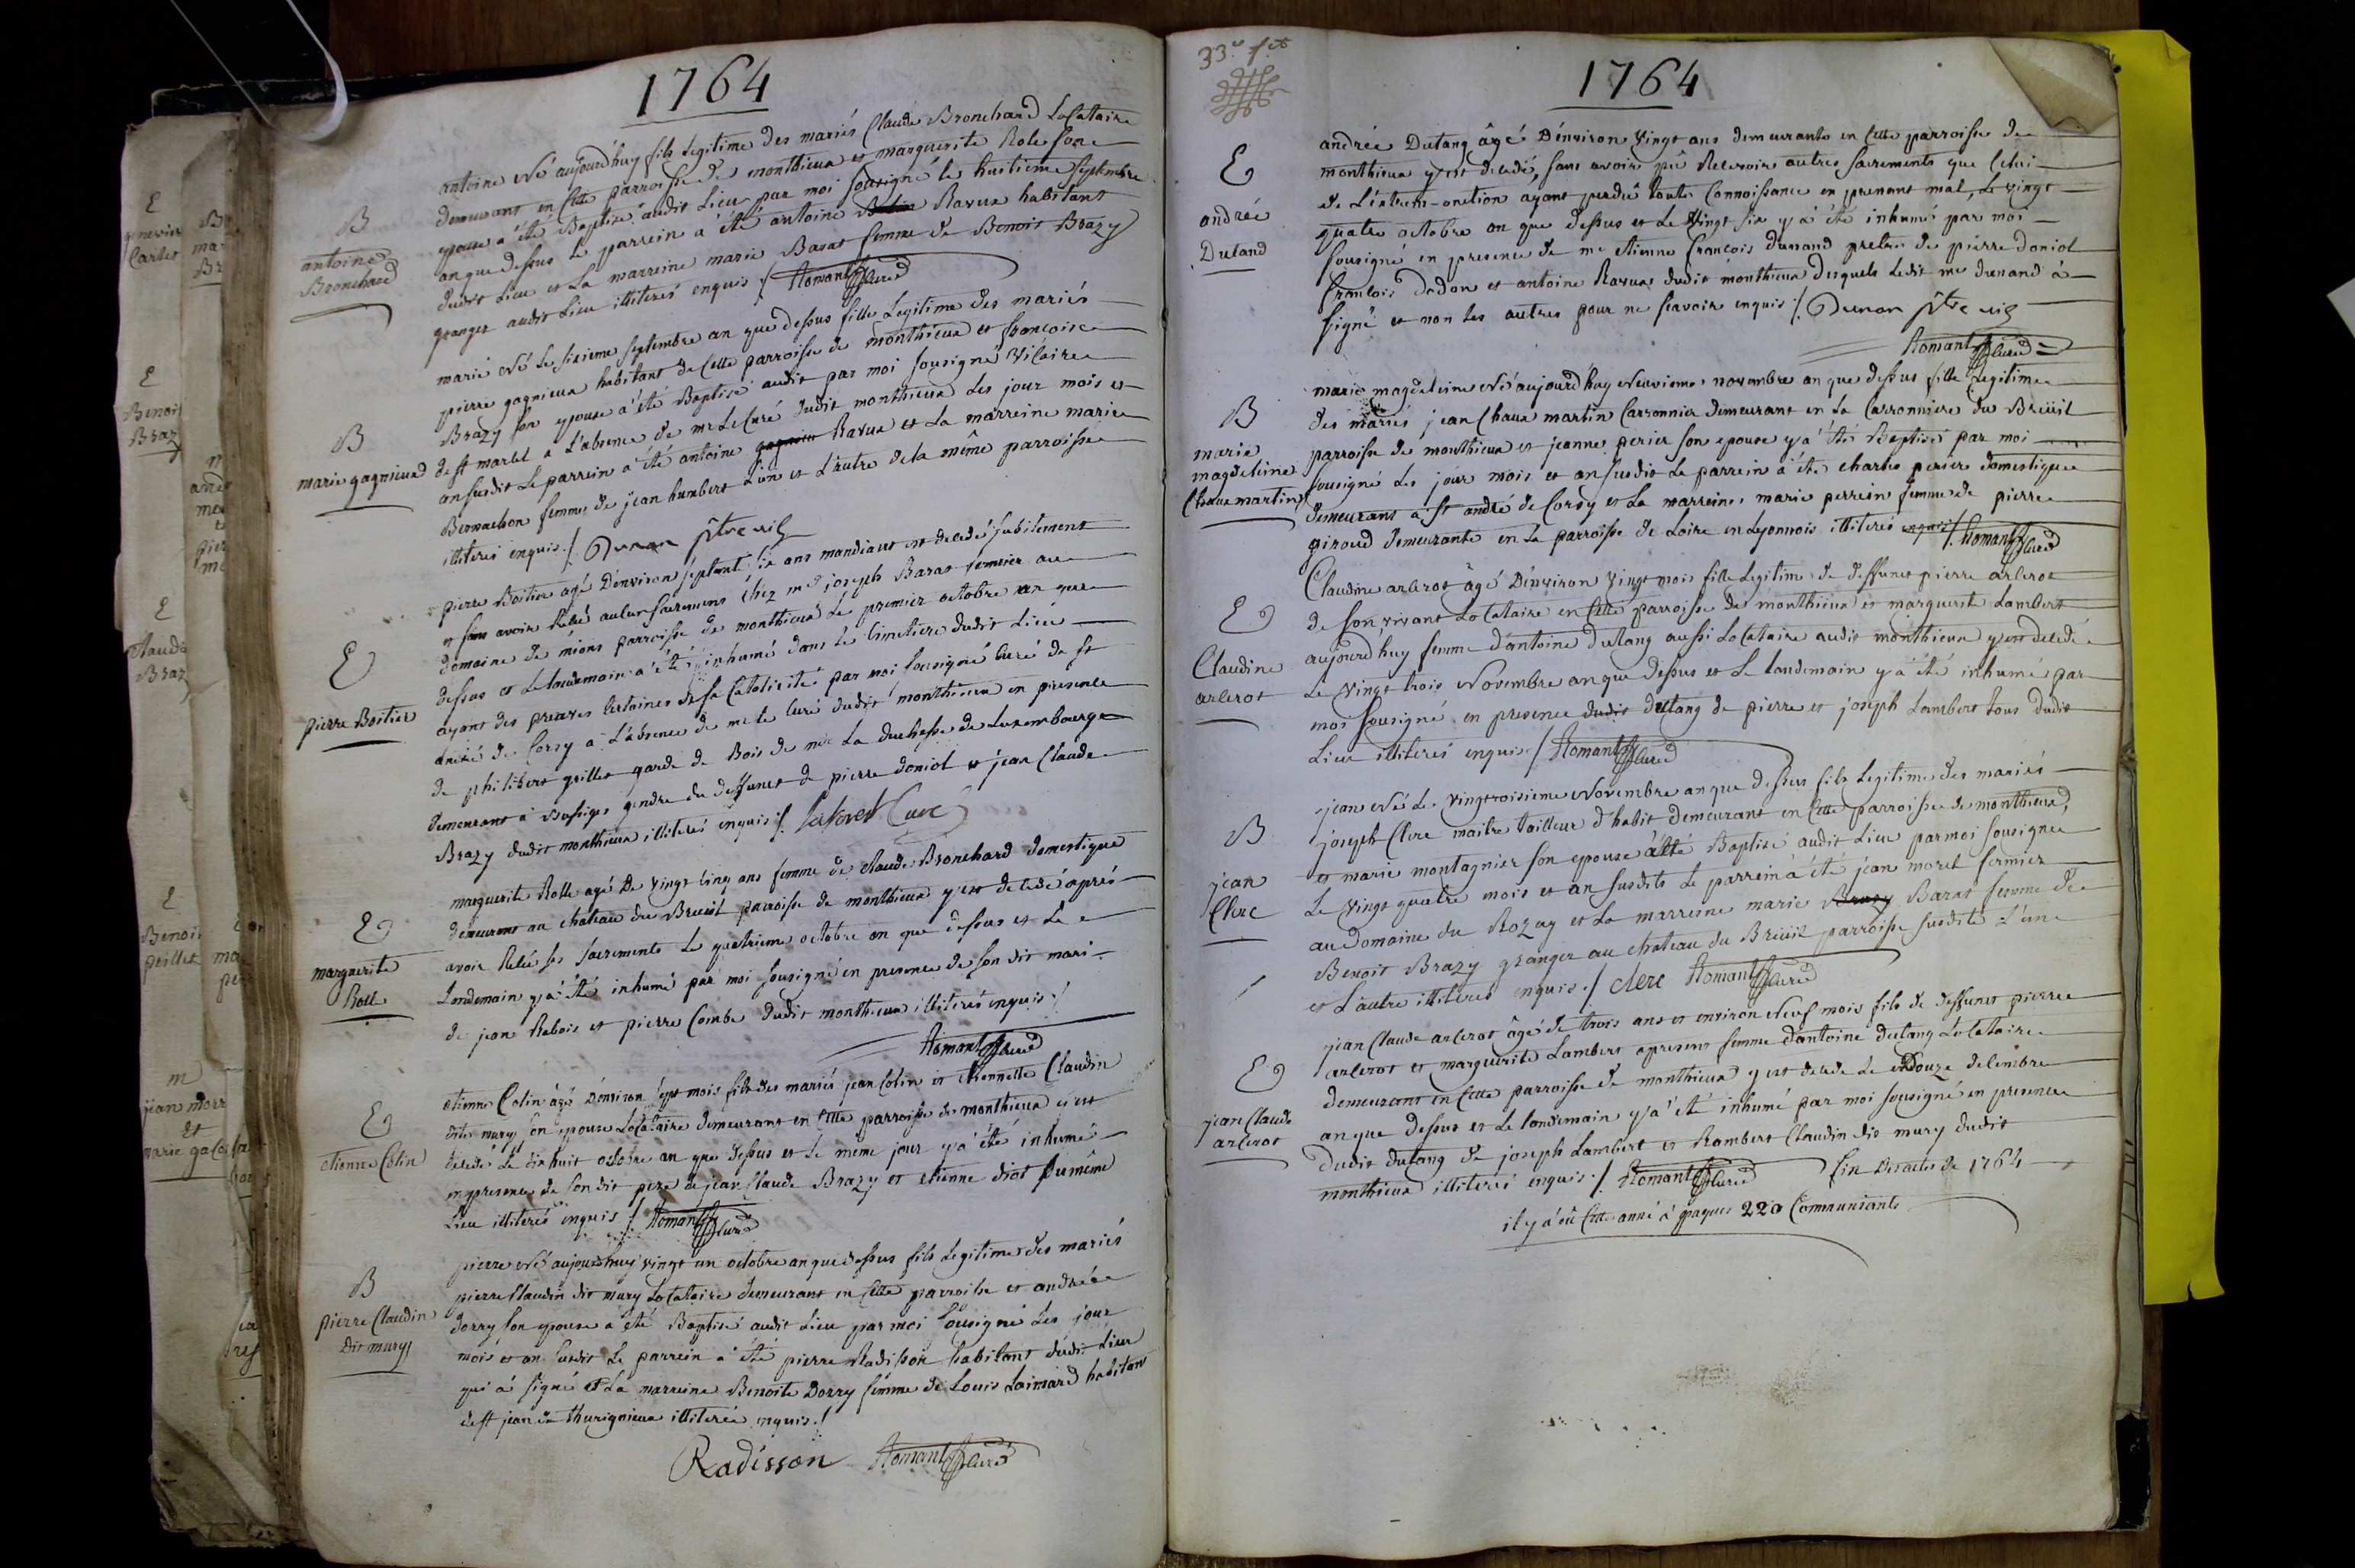 1764
B
antoine
Bronchard
antoine Né aujourd'huy fils Legitime des mariés Claude Bronchard Locataire
demeurant en Cette parroisse de monthieux et marguerite Role son
epouse a été Baptisé audit Lieu par moi sousigné le huitieme septembre
an que dessus le parrein a été antoine Ravua habitant
dudit Lieu et La marreine marie Baras femme de Benoit Brazy
granger audit Lieu illiterés enquis ./. Romant Curé
B
marie gagnieux
marie Né le sixieme septembre an que dessus fille Legitime des mariés
pierre gagnieux habitant de Cette parroisse de monthieux et francoise
Brazy son epouse a été Baptisé audit par moi sousigné Vicaire
de st marcel a L'absence de mr Le Curé dudit monthieux Les jour mois et
an susdit Le parrein a été antoine gagnieu Ravua et La marreine marie
Bernachon femme de jean humbert L'un et L'autre de la même parroisse
illiterés enquis ./. Dunan ptre vic
E
pierre Boitier
pierre Boitier agé D'environ septante six ans mandiant est decedé subitement
et sans avoir Réçû aucun sacrement chez mr joseph Baras fermier au
domaine de mions parroisse de monthieux Le premier octobre an que
dessus et Le lendemain a été inhumé dans le Cimetiere dudit Lieu
ayant des preuves Certaines de sa Catolicité par moi sousigné Curé de st
andré de Corcy a L'absence de mr le Curé dudit monthieux en presence
de philibert grillet garde de Bois de me La duchesse de Luxembourge
demeurant à Bussiges gendre du deffunct de pierre doniol et jean Claude
Brazy dudit monthieux illiterés enquis ./. Curé
E
marguerite
Roll
marguerite Rolle agé De vingt Cinq ans femme de Claude Bronchard domestique
demeurant au chateau du Breuil parroisse de monthieux y est decedé aprés
avoir Reçu ses sacrements Le quatrieme octobre an que dessus et Le
Lendemain y a été inhumé par moi sousigné en presence de son dit mari
de jean Rabois et pierre Combe dudit monthieux illiterés enquis ./.
Romant Curé
E
etienne Colin
etienne Colin agé D'environ sept mois fils des mariés jean Colin et etiennette Claudin
dite mury son epouse Locataire demeurant en Cette parroisse de monthieux y est
decedé Le dixhuit octobre an que dessus et le même jour y a été inhumé
en presence de son dit pere de jean Claude Brazy et etienne diot du même
Lieu illiterés enquis ./. Romant Curé
B
pierre Claudin
dit mury
pierre Né aujourd'huy vingt un octobre an que dessus fils Legitime des mariés
pierre Claudin dit mury Locataire demeurant en Cette parroisse et andrée
Dorry son epouse a été Baptisé audit Lieu par moi sousigné Les jour
mois et an susdit Le parrein a été pierre Radisson habitant dudit Lieu
qui a signé et La marreine Benoite Dorry femme de Louis Laimard habitant
de st jean de thurignieux illiterée enquis ./.
Radisson Romant Curé
33e
1764
E
andrée
Dutand
andrée Dutang âgé D'environ Vingt ans demeurante en Cette parroisse de
monthieux y est decedé, sans avoir pû Recevoir autres sacrements que Celui
de L'extreme-onction ayant perdu toute Connoissance en prenant mal, Le vingt
quatre octobre an que dessus et Le Vingt six y a été inhumé par moi
sousigné en presence de me etienne francois dunand pretre de pierre doniol
francois dedon et antoine Ravua dudit monthieux desquels Ledit me dunand à
signé et non les autres pour ne scavoir enquis ./. Dunan ptre vic
Romant Curé
B
marie
magdeleine
Chaux martin
marie magdeleine Né aujourd'huy Neuvieme novembre an que dessus fille Legitime
des mariés jean Chaux martin Carronnier demeurant en La Carronniere du Breüil
parroisse de monthieux et jeanne perier son epouse y a été Baptisé par moi
sousigné Les jour mois et an susdit Le parrein a été charles perier domestique
demeurant à st andré de Corcy et La marreine marie perrein femme de pierre
giroud demeurante en La parroisse de Loire en Lyonnois illiterés enquis ./. Romant Curé
E
Claudine
arlerot
Claudine arlerot âgé D'environ Vingt mois fille Legitime de deffunct pierre arlerot
de son vivant Locataire en Cette parroisse de monthieux et marguerite Lambert
aujourd'huy femme d'antoine dutang aussi Locataire audit monthieux y est decedé
Le Vingt trois Novembre an que dessus et Le landemain y a été inhumé par
moi sousigné en presence dudit dutang de pierre et joseph Lambert tous dudit
Lieu illiterés enquis ./. Romant Curé
B
jean
Clerc
jean Né Le Vingtroisieme Novembre an que dessus fils Legitime des mariés
joseph Clerc maitre tailleur d'habit demeurant en Cette parroisse de monthieux,
et marie montagnier son epouse a été Baptisé audit Lieu par moi sousigné
Le Vingt quatre mois et an susdits Le parrein a été jean moret fermier
au Domaine du Rozay et La marreine marie Brazy Baras femme de
Benoit Brazy granger au chateau du Breüil parroisse susdite L'une
et L'autre illiterés enquis ./. clerc Romant Curé
E
jean Claude
arlerot
jean Claude arlerot âgé de trois ans et environ Neuf mois fils de deffunct pierre
arlerot et marguerite Lambert apresent femme d'antoine dutang Locataire
demeurant en Cette parroisse de monthieux y est decedé Le douze decembre
an que dessus et Le landemain y a été inhumé par moi sousigné en presence
dudit dutang de joseph Lambert et Rambert Claudin dit mury dudit
monthieux illiterés enquis ./. Romant Curé fin Des actes de 1764
il y a eû Cette anné à paques 220 Communiants